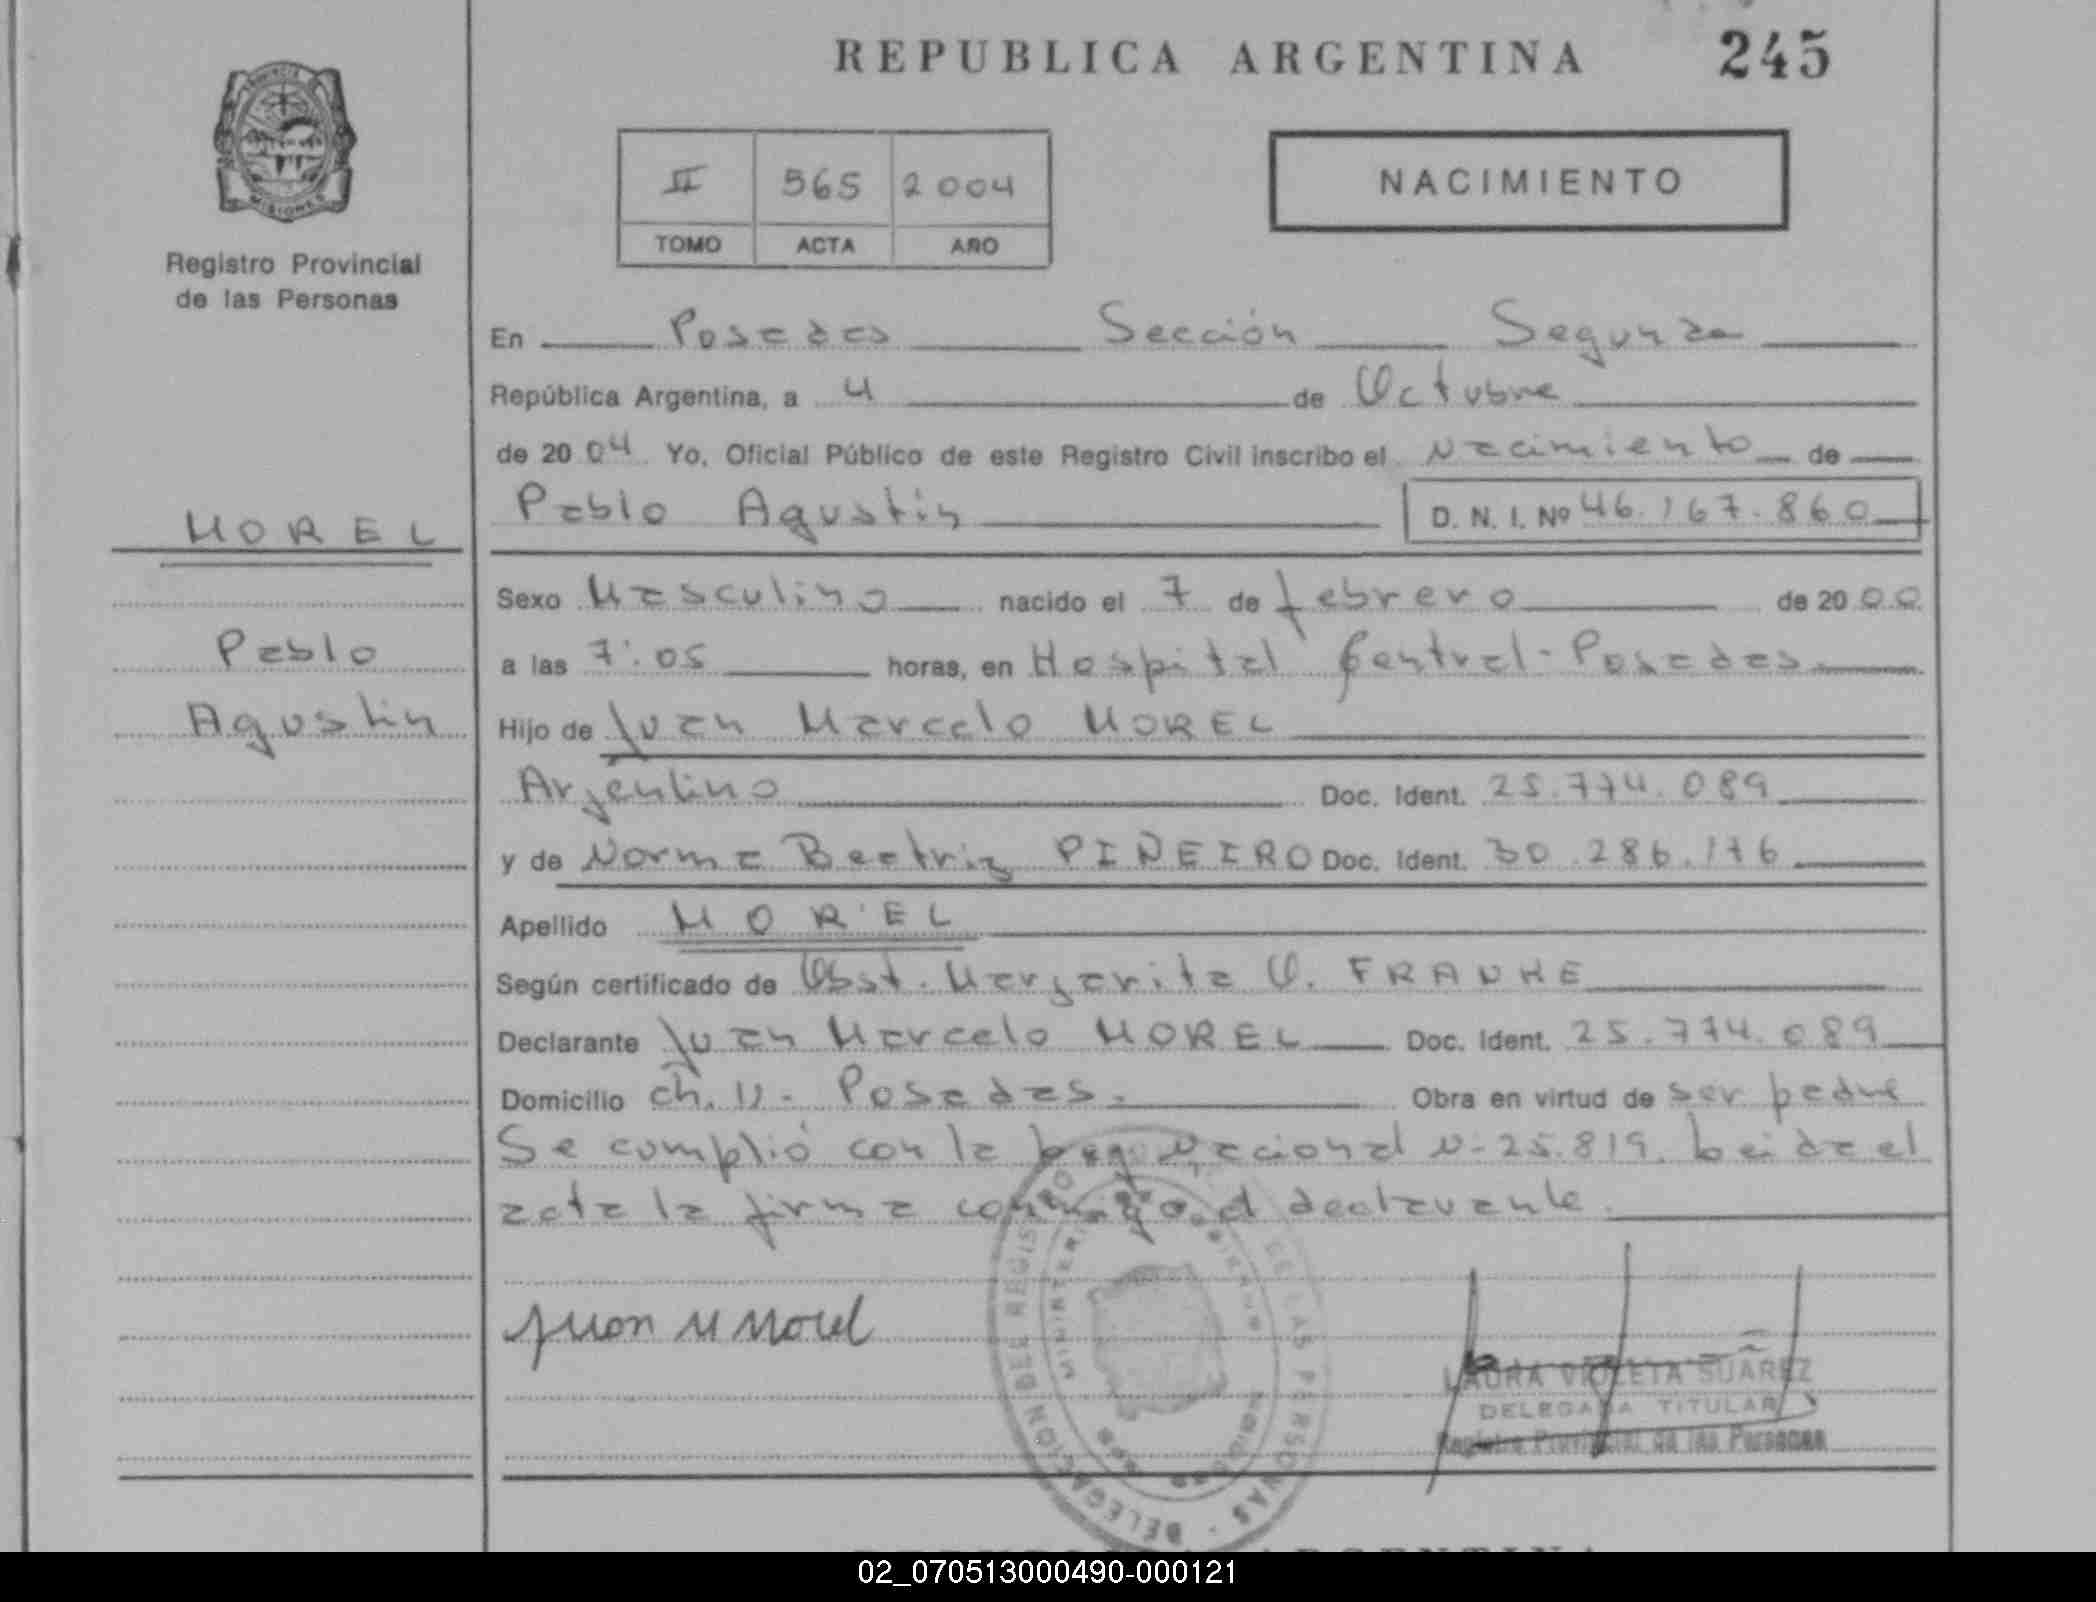 REPUBLICA ARGENTINA 245
MISIONES
Registro Provincial
de las Personas
II 565 2004
TOMO ACTA AÑO
NACIMIENTO
En Posadas Sección Segunda
República Argentina, a 4 de Octubre
de 2004 Yo, Oficial Público de este Registro Civil inscribo el nacimiento de
MOREL
Pablo Agustin D. N. I. Nº 46.167.860
Sexo Masculino nacido el 7 de febrero de 2000
Pablo
a las 7:05 horas, en Hospital Central - Posadas.
Agustin
Hijo de Juan Marcelo MOREL
Argentino Doc. Ident. 25.774.089
y de Norma Beatriz PIÑEIRO Doc. Ident. 30.286.176
Apellido MOREL
Según certificado de Obst. Margarita O. FRANKE
Declarante Juan Marcelo MOREL Doc. Ident. 25.774.089
Domicilio ch. 11 - Posadas. Obra en virtud de ser padre
Se cumplió con la Ley Nacional N- 25.819. Leida el
acta la firma conmigo el declarante.
Juan M Morel
DELEGACION DEL REGISTRO DE LAS PERSONAS
MINISTERIO DE GOBIERNO
MISIONES
LAURA VIOLETA SUAREZ
DELEGADA TITULAR
Registro Provincial de las Personas
02_070513000490-000121